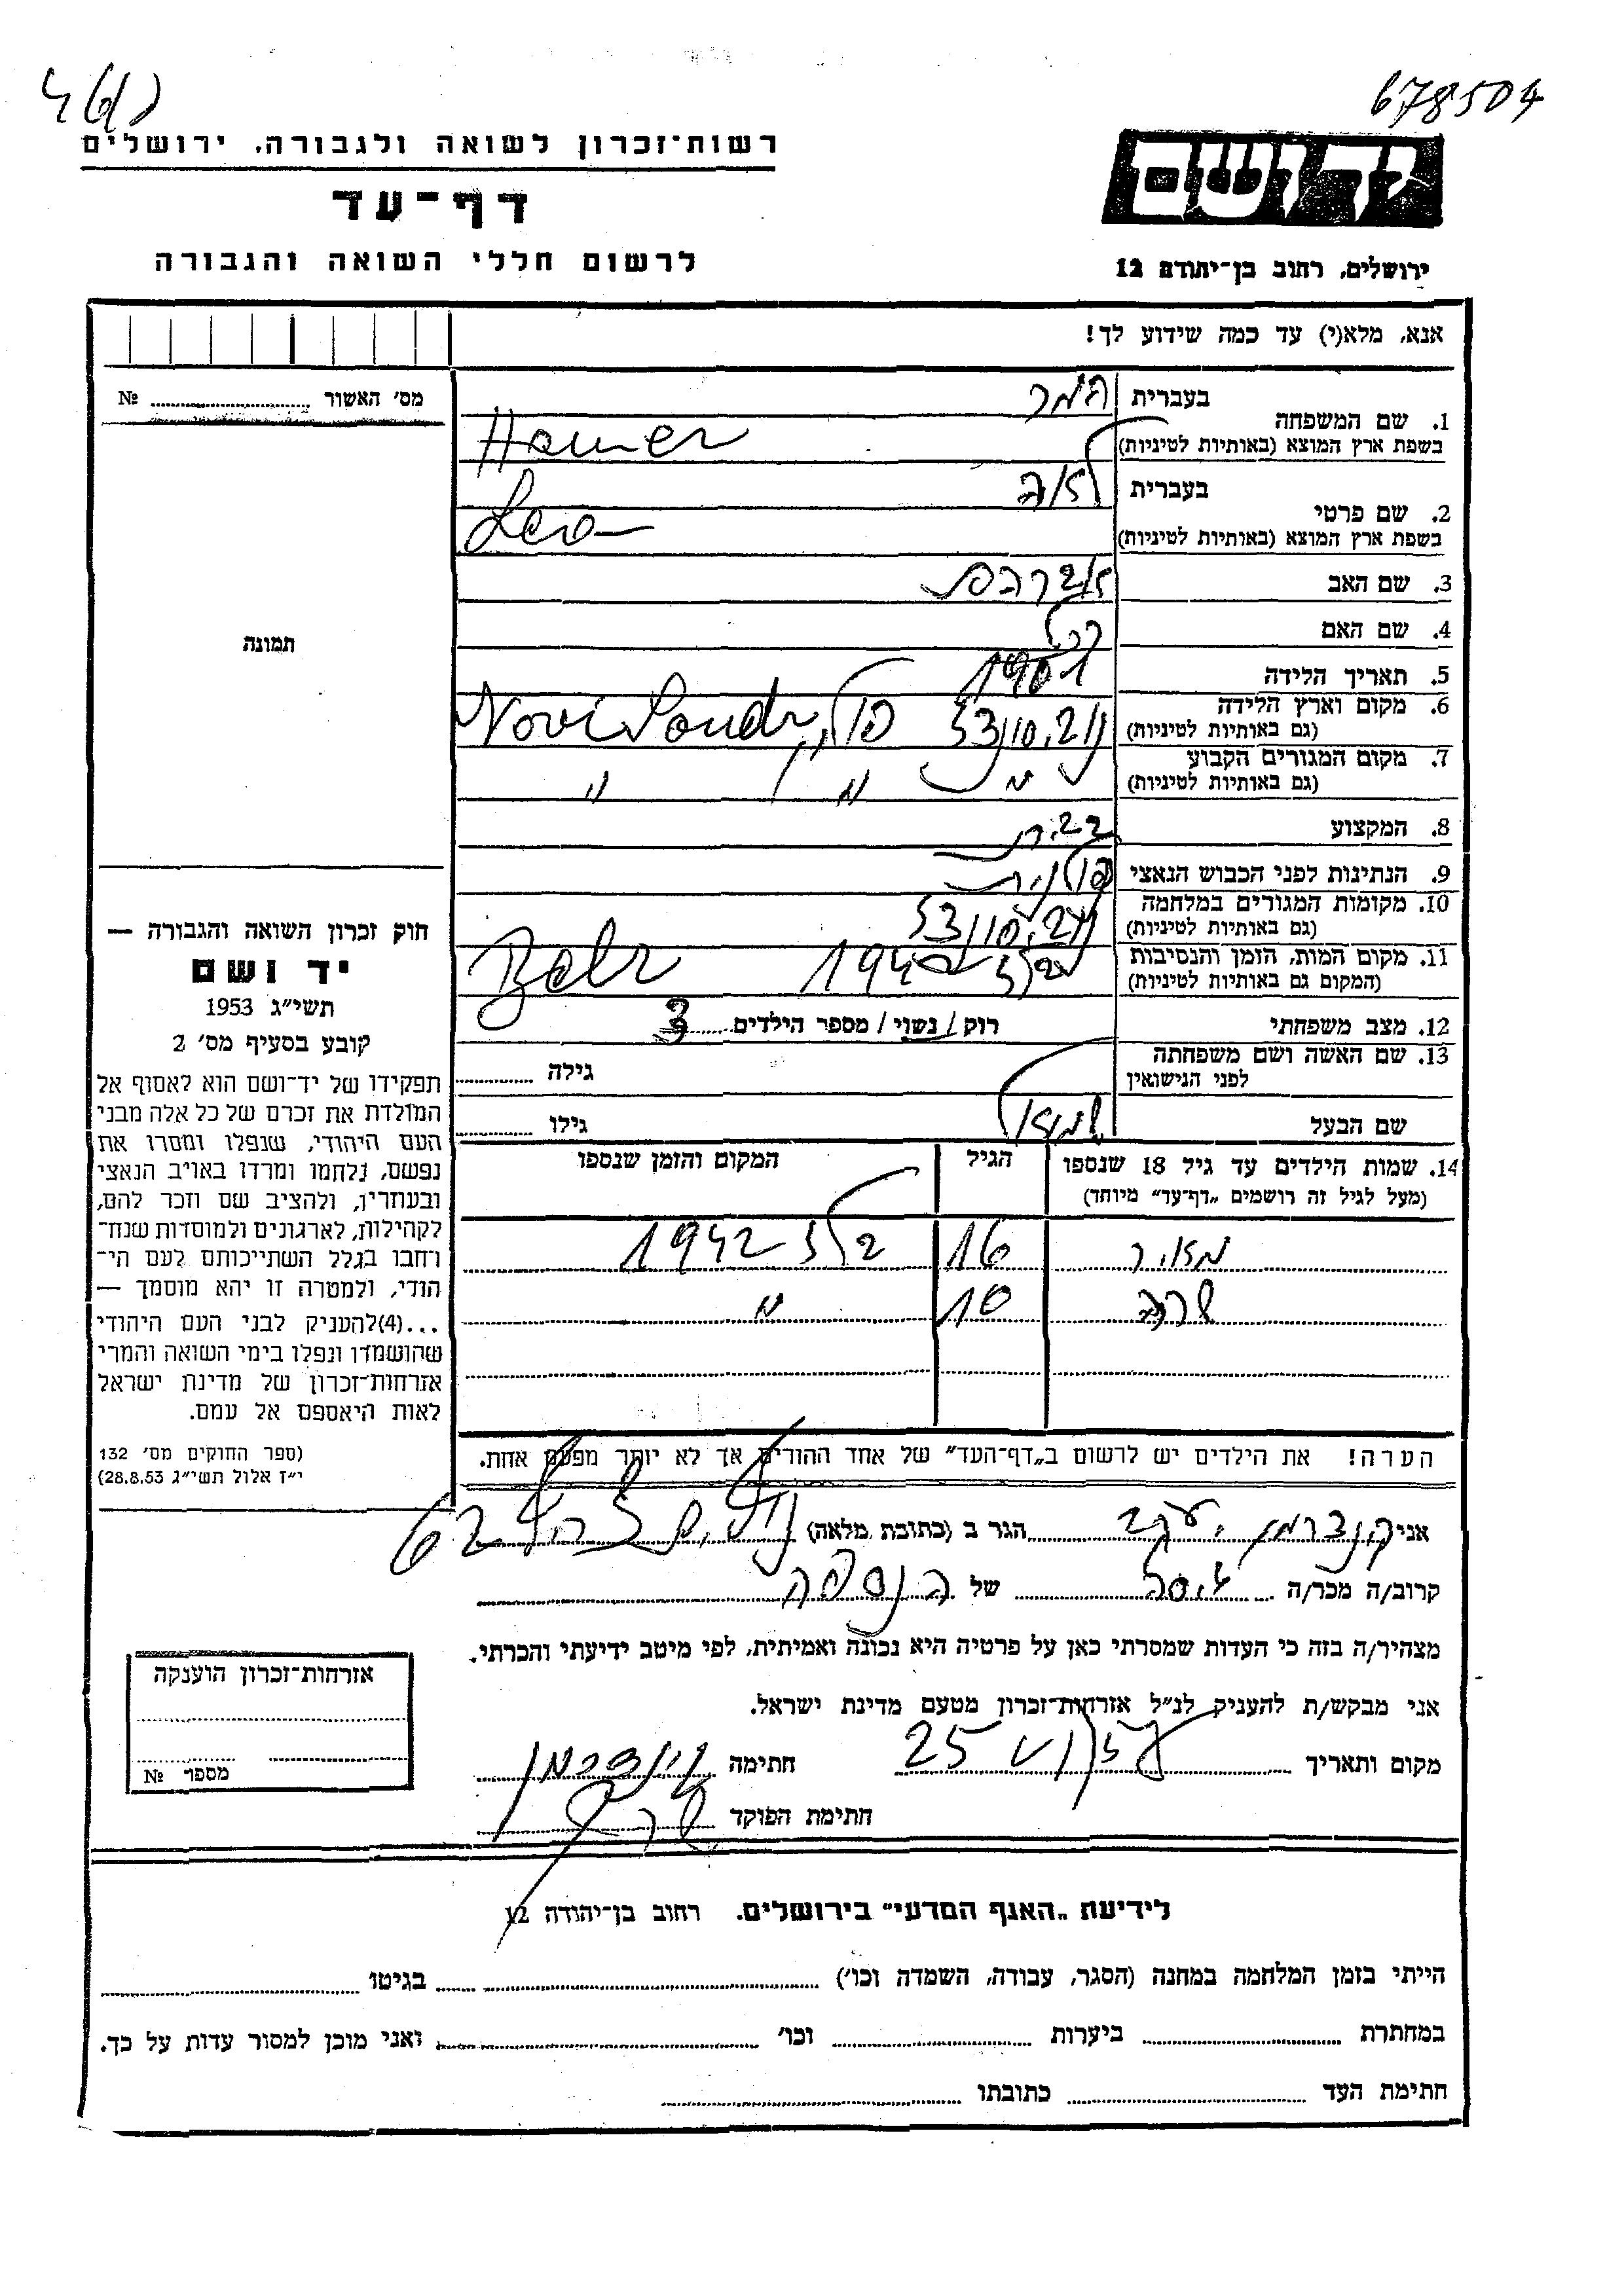 678504
רשות־זכרון לשואה ולגבורה, ירושלים
יד ושם
דף־עד
לרשום חללי השואה והגבורה
ירושלים, רחוב בן־יהודה 12
אנא, מלא(י) עד כמה שידוע לך!
מס׳ האשור № 
1. שם המשפחה
בעברית המר
בשפת ארץ המוצא (באותיות לטיניות) Hamer
2. שם פרטי
בעברית לאה
בשפת ארץ המוצא (באותיות לטיניות) Lea
3. שם האב אברהם
4. שם האם רחל
5. תאריך הלידה 1901
6. מקום וארץ הלידה
(גם באותיות לטיניות) פולין
7. מקום המגורים הקבוע
(גם באותיות לטיניות) " " "
8. המקצוע
9. הנתינות לפני הכבוש הנאצי פולנית
10. מקומות המגורים במלחמה
(גם באותיות לטיניות)
11. מקום המות, הזמן והנסיבות
(המקום גם באותיות לטיניות) בלז 1942 Belz
12. מצב משפחתי רוק / נשוי / מספר הילדים 3
13. שם האשה ושם משפחתה
לפני הנישואין
גילה
שם הבעל
גילו
14. שמות הילדים עד גיל 18 שנספו
(מעל לגיל זה רושמים „דף־עד" מיוחד)
הגיל
המקום והזמן שנספו
מאיר 16 בלז 1942
שרה 10 "
הערה! את הילדים יש לרשום ב„דף־העד" של אחד ההורים אך לא יותר מפעם אחת.
תמונה
חוק זכרון השואה והגבורה —
יד ושם
תשי״ג 1953
קובע בסעיף מס׳ 2
תפקידו של יד־ושם הוא לאסוף אל
המולדת את זכרם של כל אלה מבני
העם היהודי, שנפלו ומסרו את
נפשם, נלחמו ומרדו באויב הנאצי
ובעוזריו, ולהציב שם וזכר להם,
לקהילות, לארגונים ולמוסדות שנח־
רבו בגלל השתייכותם לעם הי־
הודי, ולמטרה זו יהא מוסמך —
...(4)להעניק לבני העם היהודי
שהושמדו ונפלו בימי השואה והמרי
אזרחות־זכרון של מדינת ישראל
לאות היאספם אל עמם.
(ספר החוקים מס׳ 132
י״ז אלול תשי״ג 28.8.53)
אני יעקב הגר ב (כתובת מלאה) 62
קרוב/ה מכר/ה גיסה של הנספה
מצהיר/ה בזה כי העדות שמסרתי כאן על פרטיה היא נכונה ואמיתית, לפי מיטב ידיעתי והכרתי.
אני מבקש/ת להעניק לנ״ל אזרחות־זכרון מטעם מדינת ישראל.
מקום ותאריך 25 חתימה
חתימת הפוקד
אזרחות־זכרון הוענקה
מספר №
לידיעת „האגף המדעי" בירושלים. רחוב בן־יהודה 12
הייתי בזמן המלחמה במחנה (הסגר, עבודה, השמדה וכו׳) בגיטו
במחתרת ביערות וכו׳ ואני מוכן למסור עדות על כך.
חתימת העד כתובתו